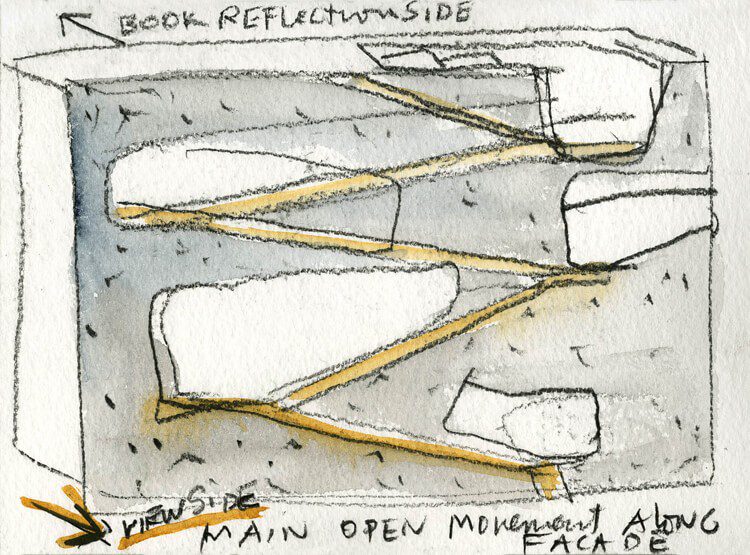 BOOK REFLECTION SIDE
VIEW SIDE
MAIN OPEN MOVEMENT ALONG
FACADE